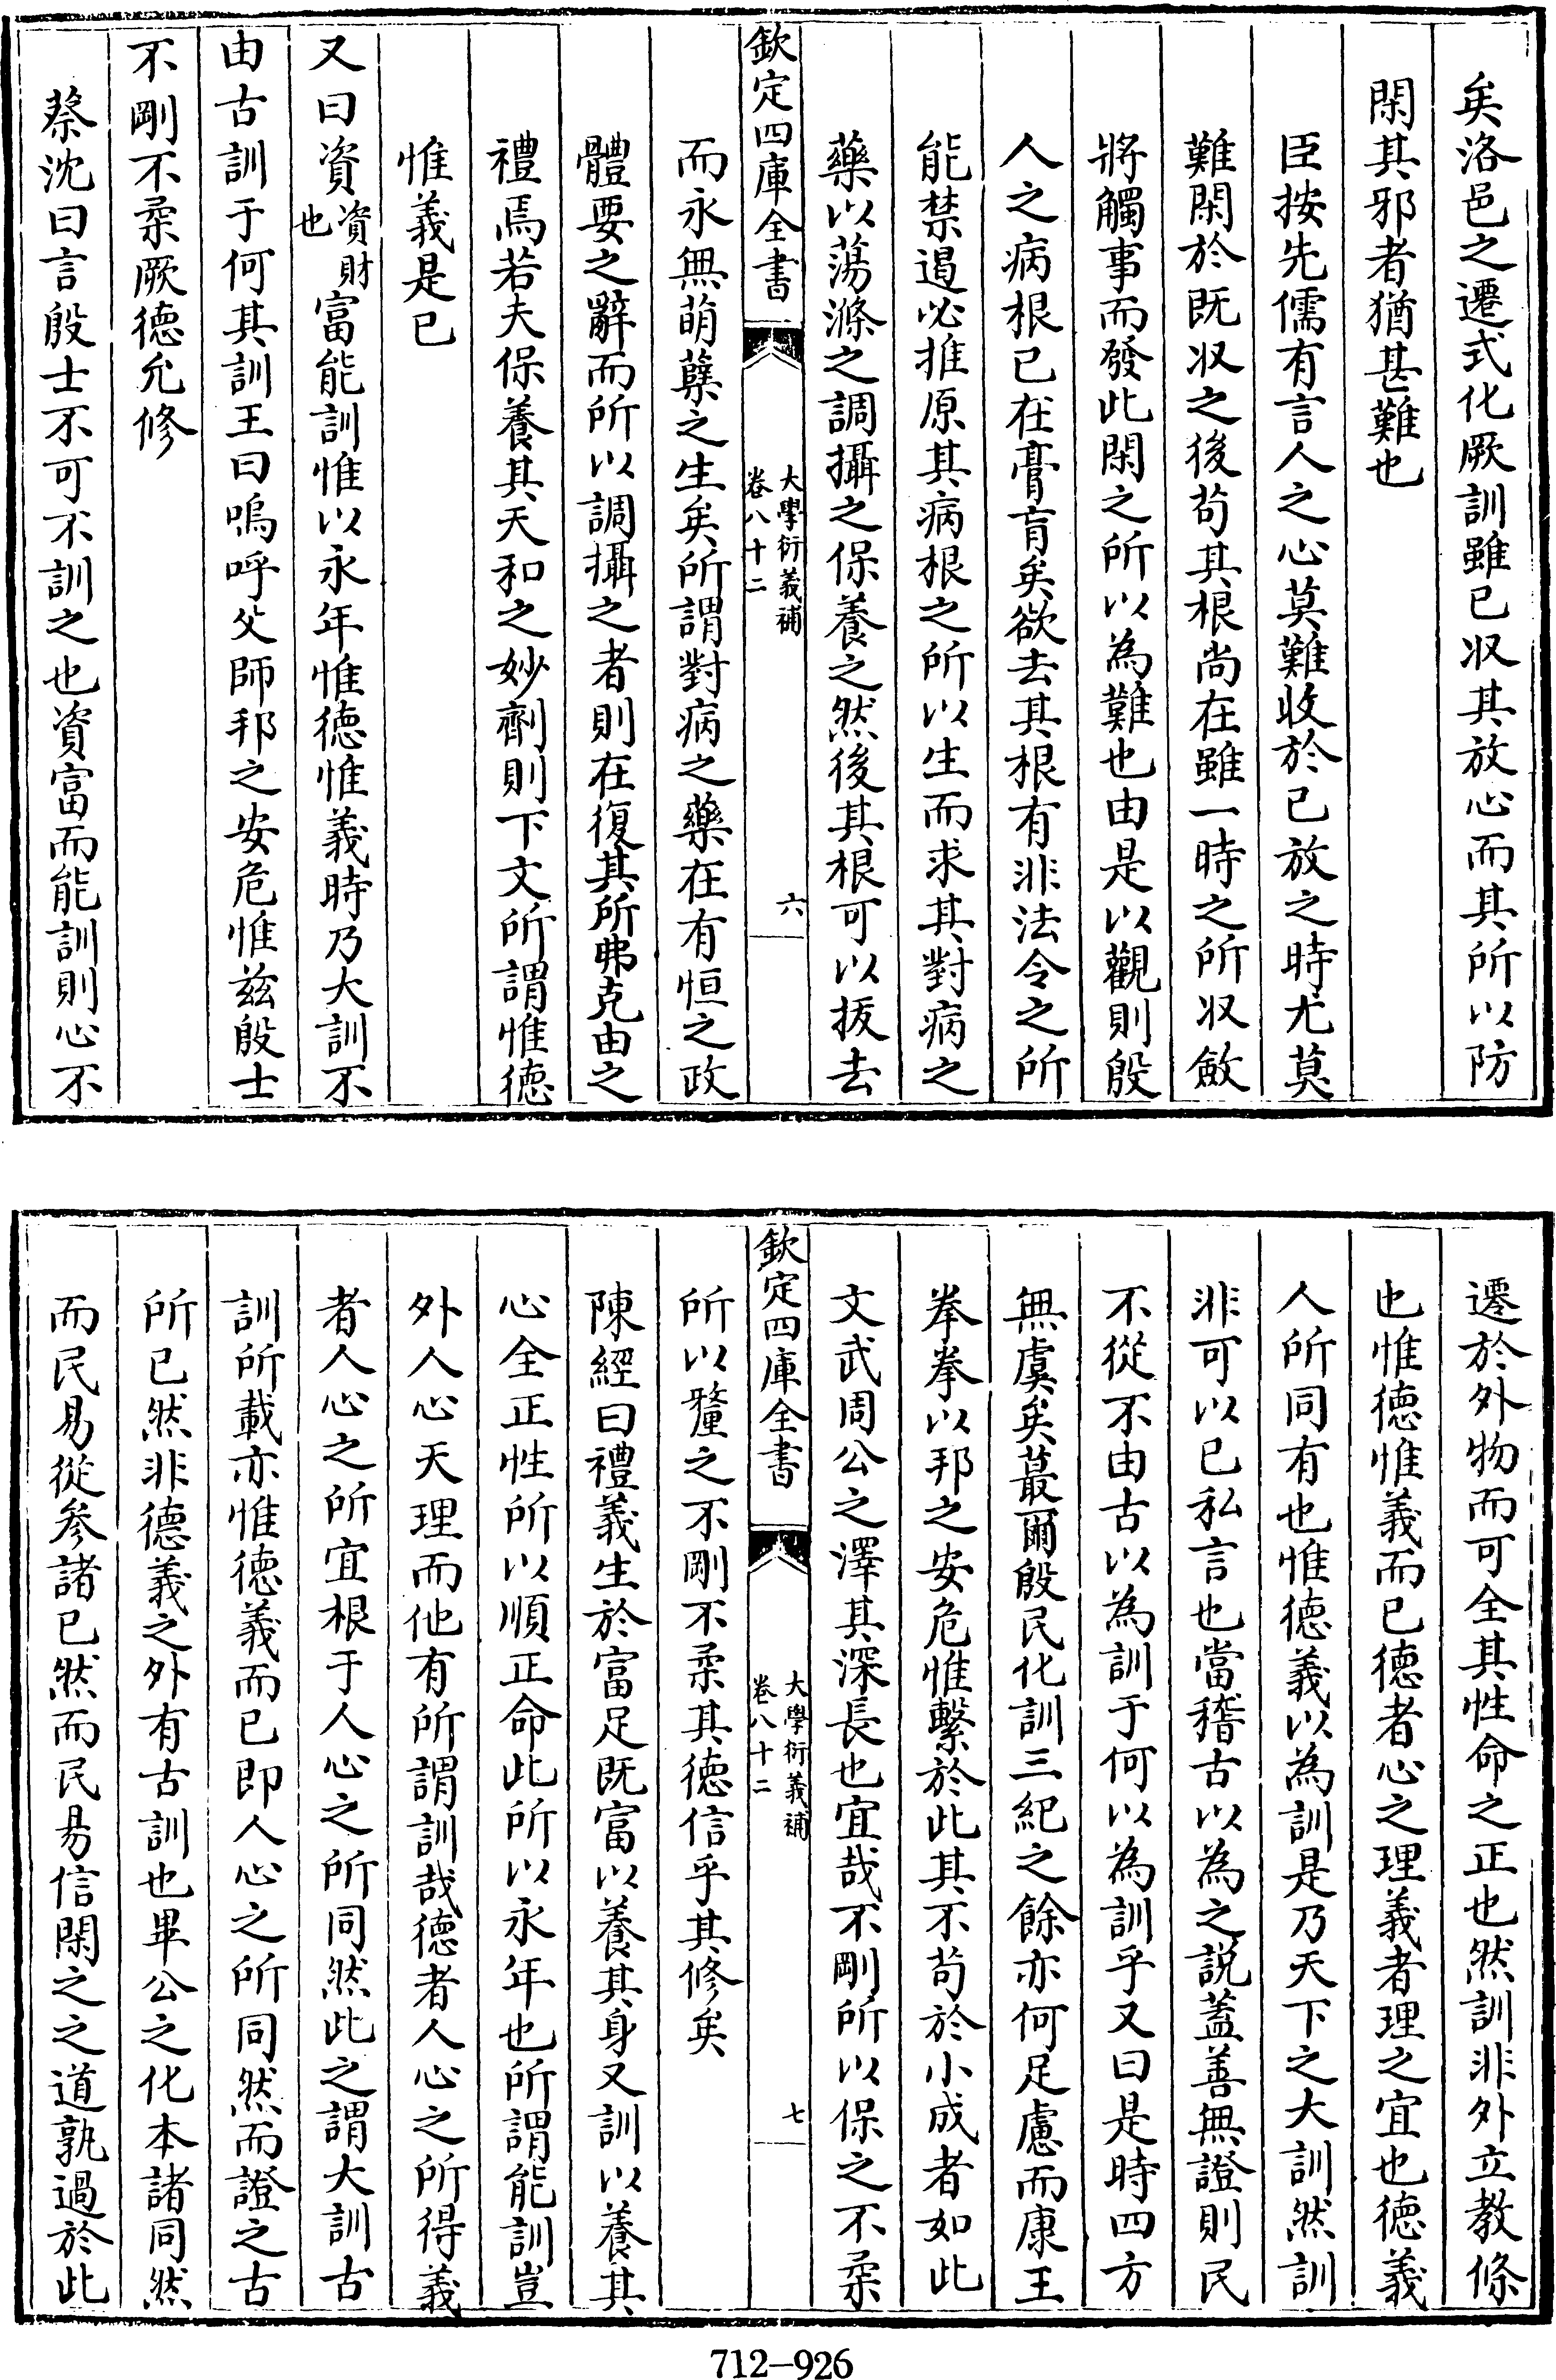 矣洛邑之遷式化厥訓雖已収其放心而其所以防
閑其邪者猶甚難也
臣按先儒有言人之心莫難收於已放之時尤莫
難閑於既収之後茍其根尚在雖一時之所収斂
將觸事而發此閑之所以為難也由是以觀則殷
人之病根已在膏肓矣欲去其根有非法令之所
能禁遏必推原其病根之所以生而求其對病之
藥以蕩滌之調攝之保養之然後其根可以拔去
欽定四庫全書
大學衍義補
卷八十二
六
而永無萌櫱之生矣所謂對病之藥在有恒之政
體要之辭而所以調攝之者則在復其所弗克由之
禮焉若夫保養其天和之妙劑則下文所謂惟德
惟義是已
又曰資資財也富能訓惟以永年惟德惟義時乃大訓不
由古訓于何其訓王曰嗚呼父師邦之安危惟兹殷士
不剛不柔厥德允修
蔡沈曰言殷士不可不訓之也資富而能訓則心不
遷於外物而可全其性命之正也然訓非外立教條
也惟德惟義而已德者心之理義者理之宜也德義
人所同有也惟德義以為訓是乃天下之大訓然訓
非可以已私言也當稽古以為之説蓋善無證則民
不從不由古以為訓于何以為訓乎又曰是時四方
無虞矣蕞爾殷民化訓三紀之餘亦何足慮而康王
拳拳以邦之安危惟繫於此其不茍於小成者如此
文武周公之澤其深長也宜哉不剛所以保之不柔
欽定四庫全書
大學衍義補
卷八十二
七
所以釐之不剛不柔其德信乎其修矣
陳經曰禮義生於富足既富以養其身又訓以養其
心全正性所以順正命此所以永年也所謂能訓豈
外人心天理而他有所謂訓哉德者人心之所得義
者人心之所宜根于人心之所同然此之謂大訓古
訓所載亦惟德義而已即人心之所同然而證之古
所已然非德義之外有古訓也畢公之化本諸同然
而民易從參諸已然而民易信閑之之道孰過於此
712-926